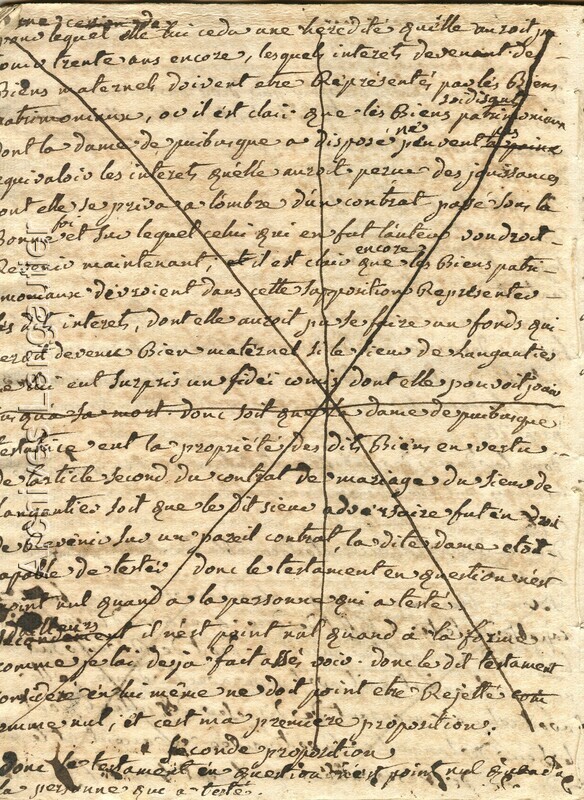 une cession
dans lequel elle lui ceda une hérédité qu'elle auroit pu
jouir trente ans encore, lesquels interets devenant de
Biens maternels doivent etre Représentés par les Biens
patrimoniaux, ou il est clair que les Biens soi disant patrimoniaux
dont la dame de puibusque a disposé ne peuvent pas
equivaloir les interets qu'elle auroit perçu des jouissances
dont elle se priva a lombre d'un contrat passé sous la
Bonne foi et sur lequel celui qui en fut l'auteur voudroit
Revenir maintenant; et il est clair encore que les Biens patri-
moniaux devroient dans cette supposition Representer
les dits interets, dont elle auroit pu se faire un fonds qui
seroit devenu Bien maternel si le sieur de hangauties
ne lui eut surpris un fidei comis dont elle pouvoit jouir
jusqua sa mort. donc soit que la dame de puibusque
testatrice eut la propriété des dits Biens en vertu
de l'article second du contrat de mariage du sieur de
hangauties soit que le dit sieur adversaire fut en droi
de Revenir sur un pareil contrat, la dite dame etoit
capable de tester donc le testament en question n'est
point nul quand a la personne qui a testé.
d'ailleurs
secondement il n'est point nul quand à la forme
comme je l'ai deja fait assés voir. donc le dit testament
considéré en lui même ne doit point etre Rejetté com
comme nul, et c'est ma première proposition.
seconde proposition
donc le testament en question n'est point nul quand a
la personne qui a testé.
Archives